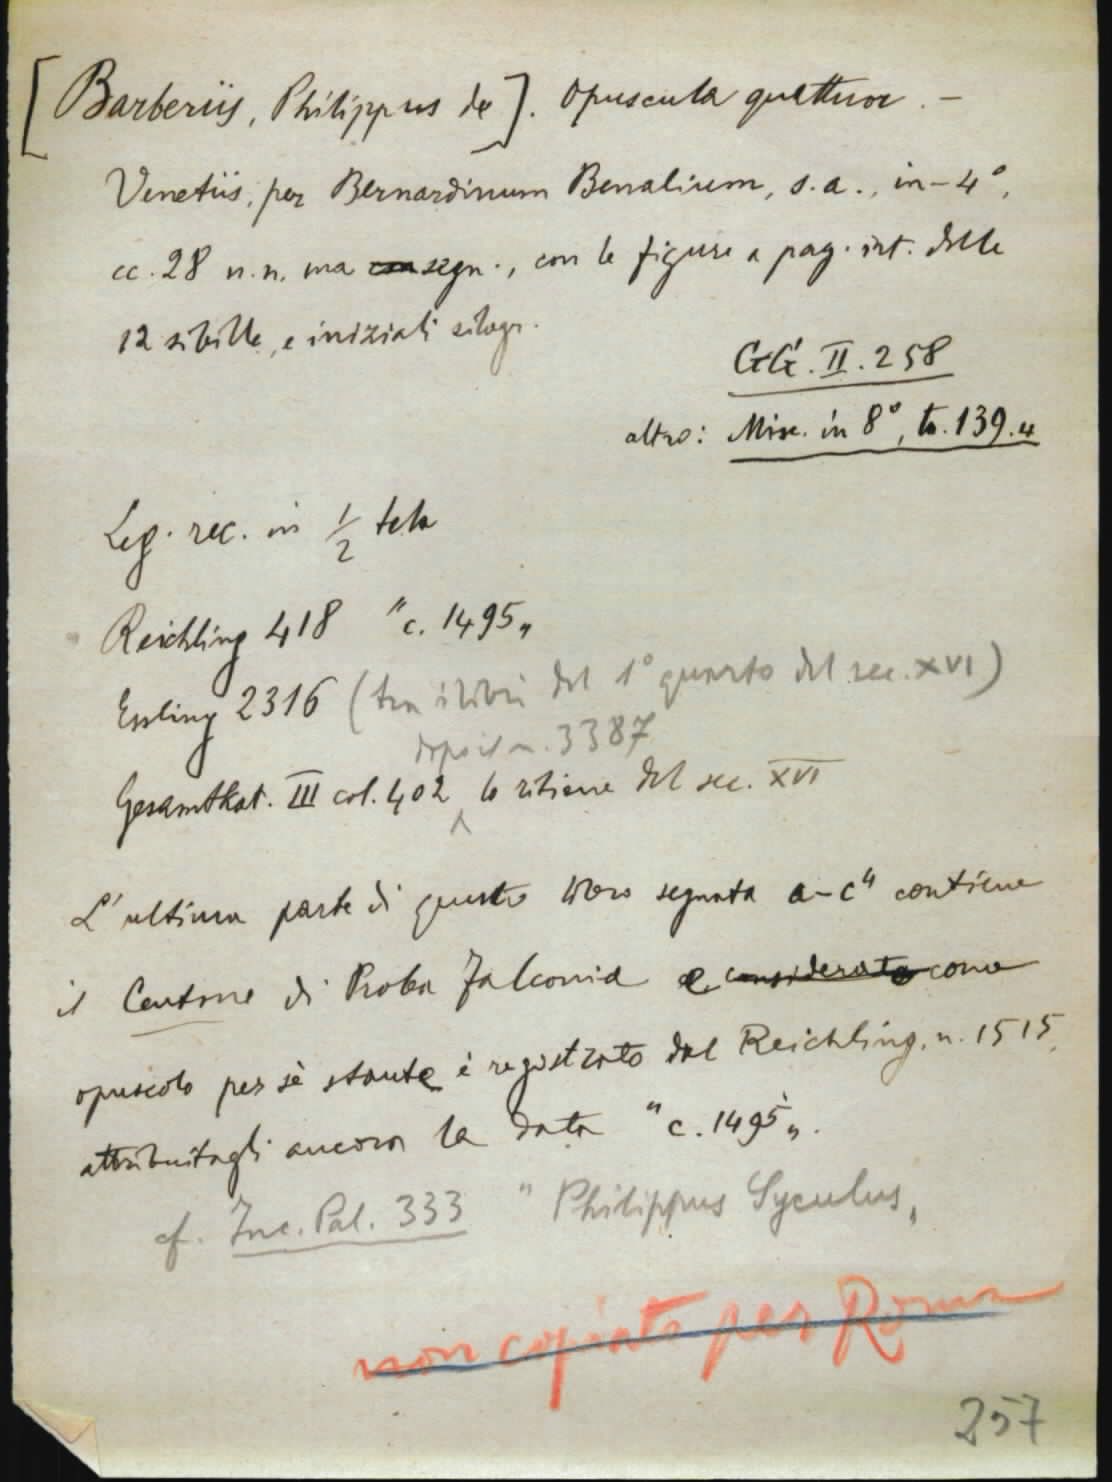 [Barberiis, Philippus de]. Opuscula quattuor. -
Venetiis, per Bernardinum Benalium, s.a., in-4°,
cc. 28 n.n. ma con segn., con le figure a pag. int. delle
12 sibille, e iniziali silogr.
GG. II. 258
altro: Misc. in 8°, to. 139.4
Leg. rec. in 1/2 tela
Reichling 418 "c. 1495"
Essling 2316 (tra i libri del 1° quarto del sec. XVI)
dopo il n. 3387
Gesamtkat. III col. 402 lo ritiene del sec. XVI
L'ultima parte di questo libro segnata a-c4 contiene
il Centone di Proba Falconia e considerato come
opuscolo per sè stante è registrato dal Reichling, n. 1515,
attribuitagli ancora la data "c. 1495".
cf. Inc. Pal. 333 "Philippus Syculus"
non copiato per Roma
257